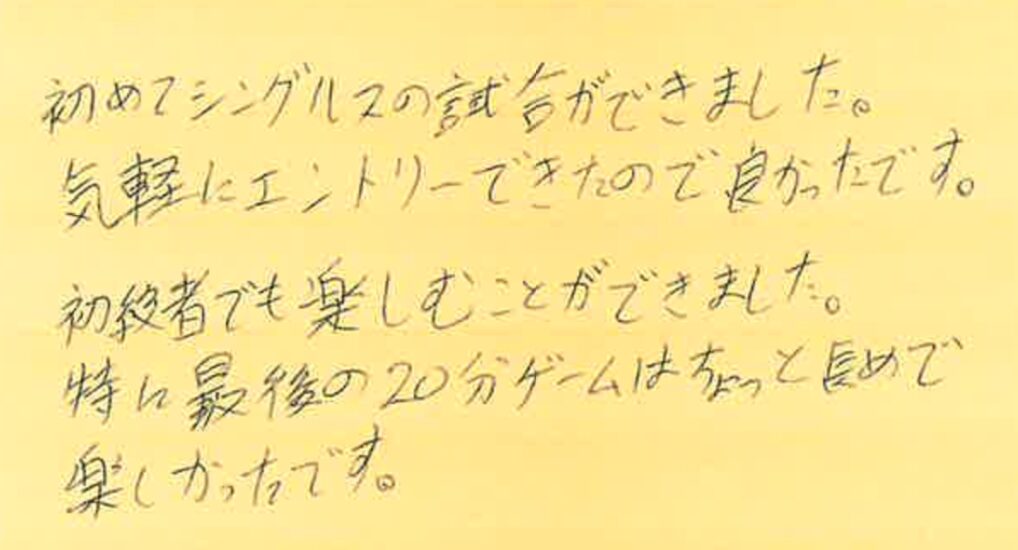 初めてシングルスの試合ができました。
気軽にエントリーできたので良かったです。
初級者でも楽しむことができました。
特に最後の20分ゲームはちょっと長めで
楽しかったです。